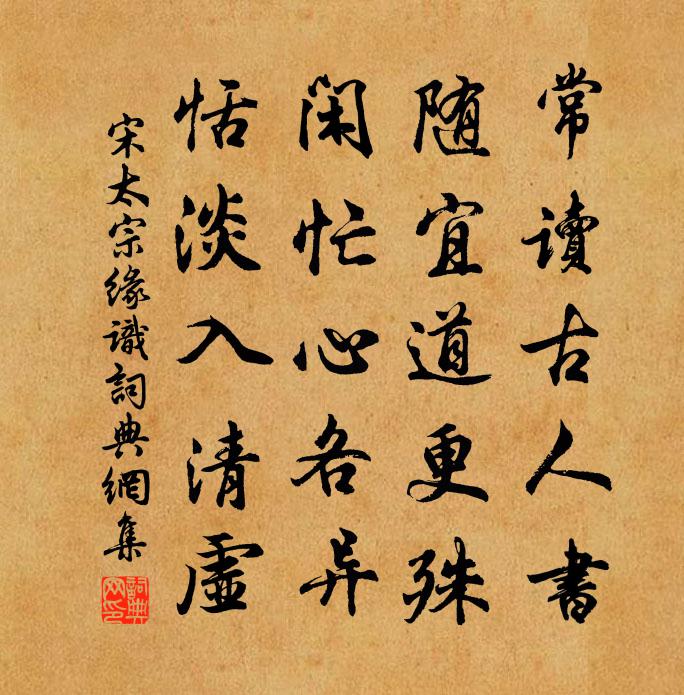 常讀古人書
随宜道更殊
闲忙心各异
恬淡入清虛
宋太宗緣識詞典網集
詞典
网印